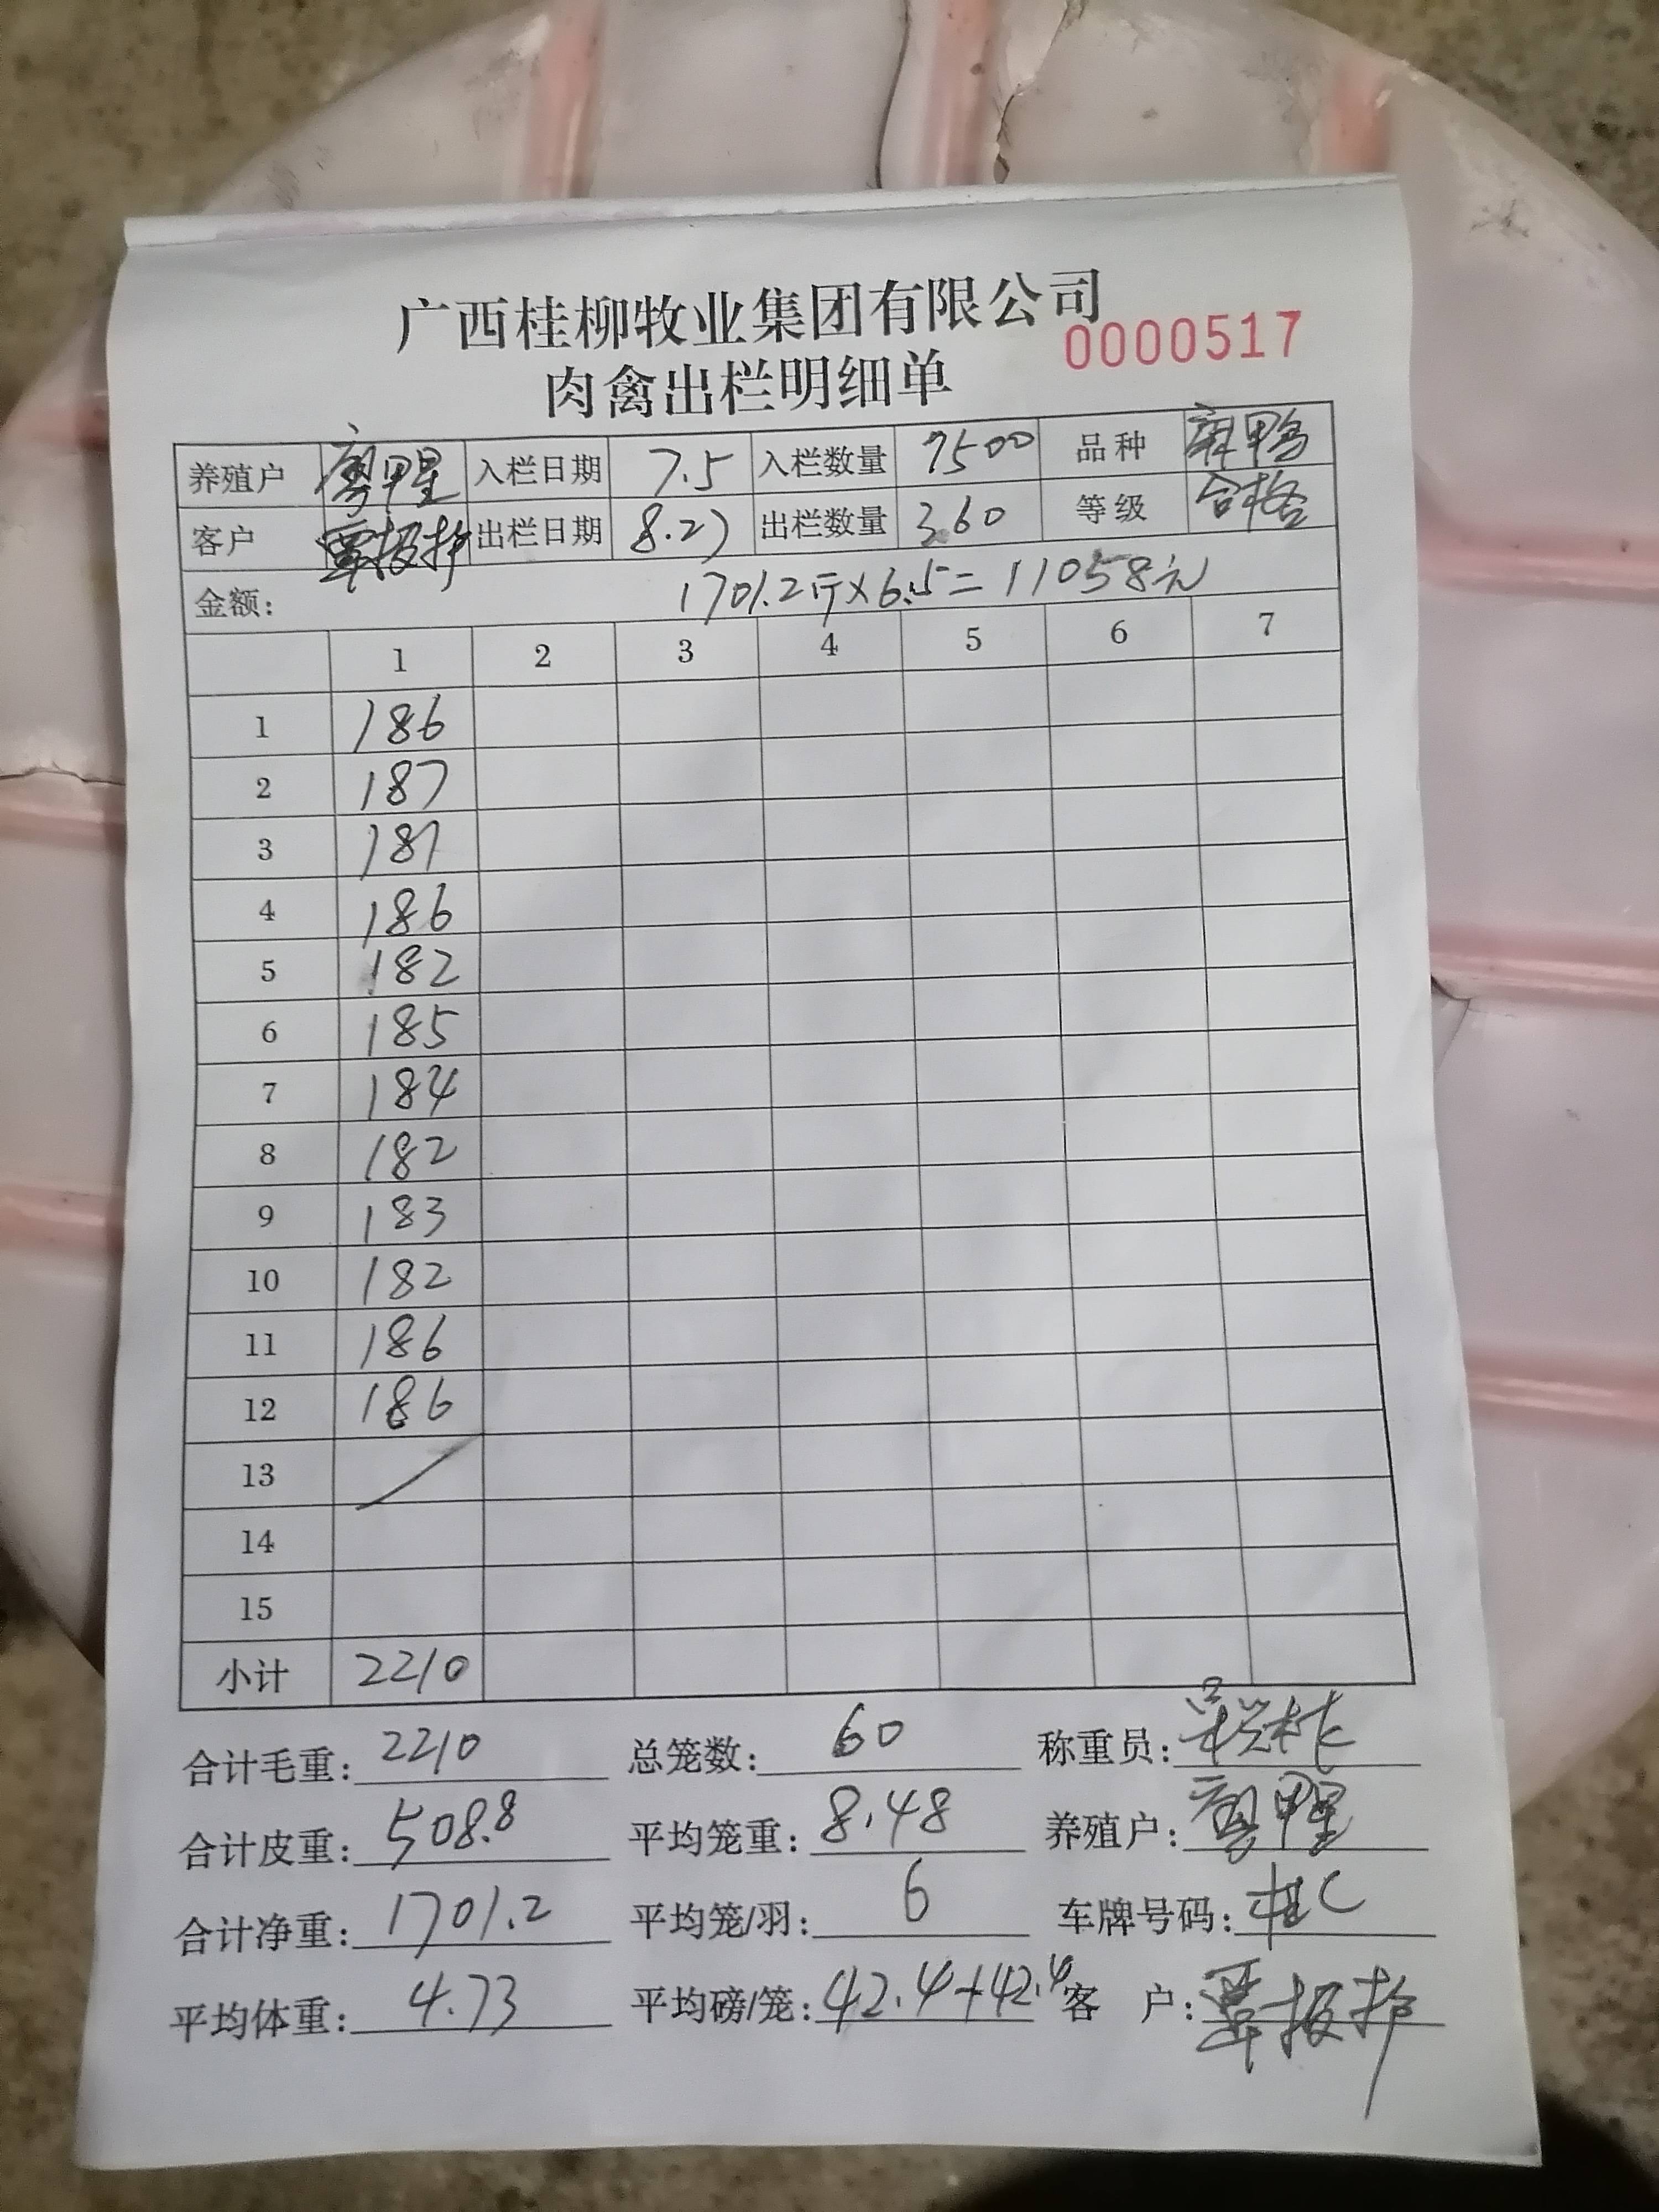 广西桂柳牧业集团有限公司
0000517
肉禽出栏明细单
养殖户 廖甲星 入栏日期 7.5 入栏数量 7500 品种 麻鸭
客户 覃报护 出栏日期 8.27 出栏数量 360 等级 合格
金额: 1701.2斤×6.5=11058元
1 2 3 4 5 6 7
1 186
2 187
3 181
4 186
5 182
6 185
7 184
8 182
9 183
10 182
11 186
12 186
13
14
15
小计 2210
合计毛重: 2210 总笼数: 60 称重员:
合计皮重: 508.8 平均笼重: 8.48 养殖户: 廖甲星
合计净重: 1701.2 平均笼/羽: 6 车牌号码: 桂C
平均体重: 4.73 平均磅/笼: 42.4+42.4 客 户: 覃报护